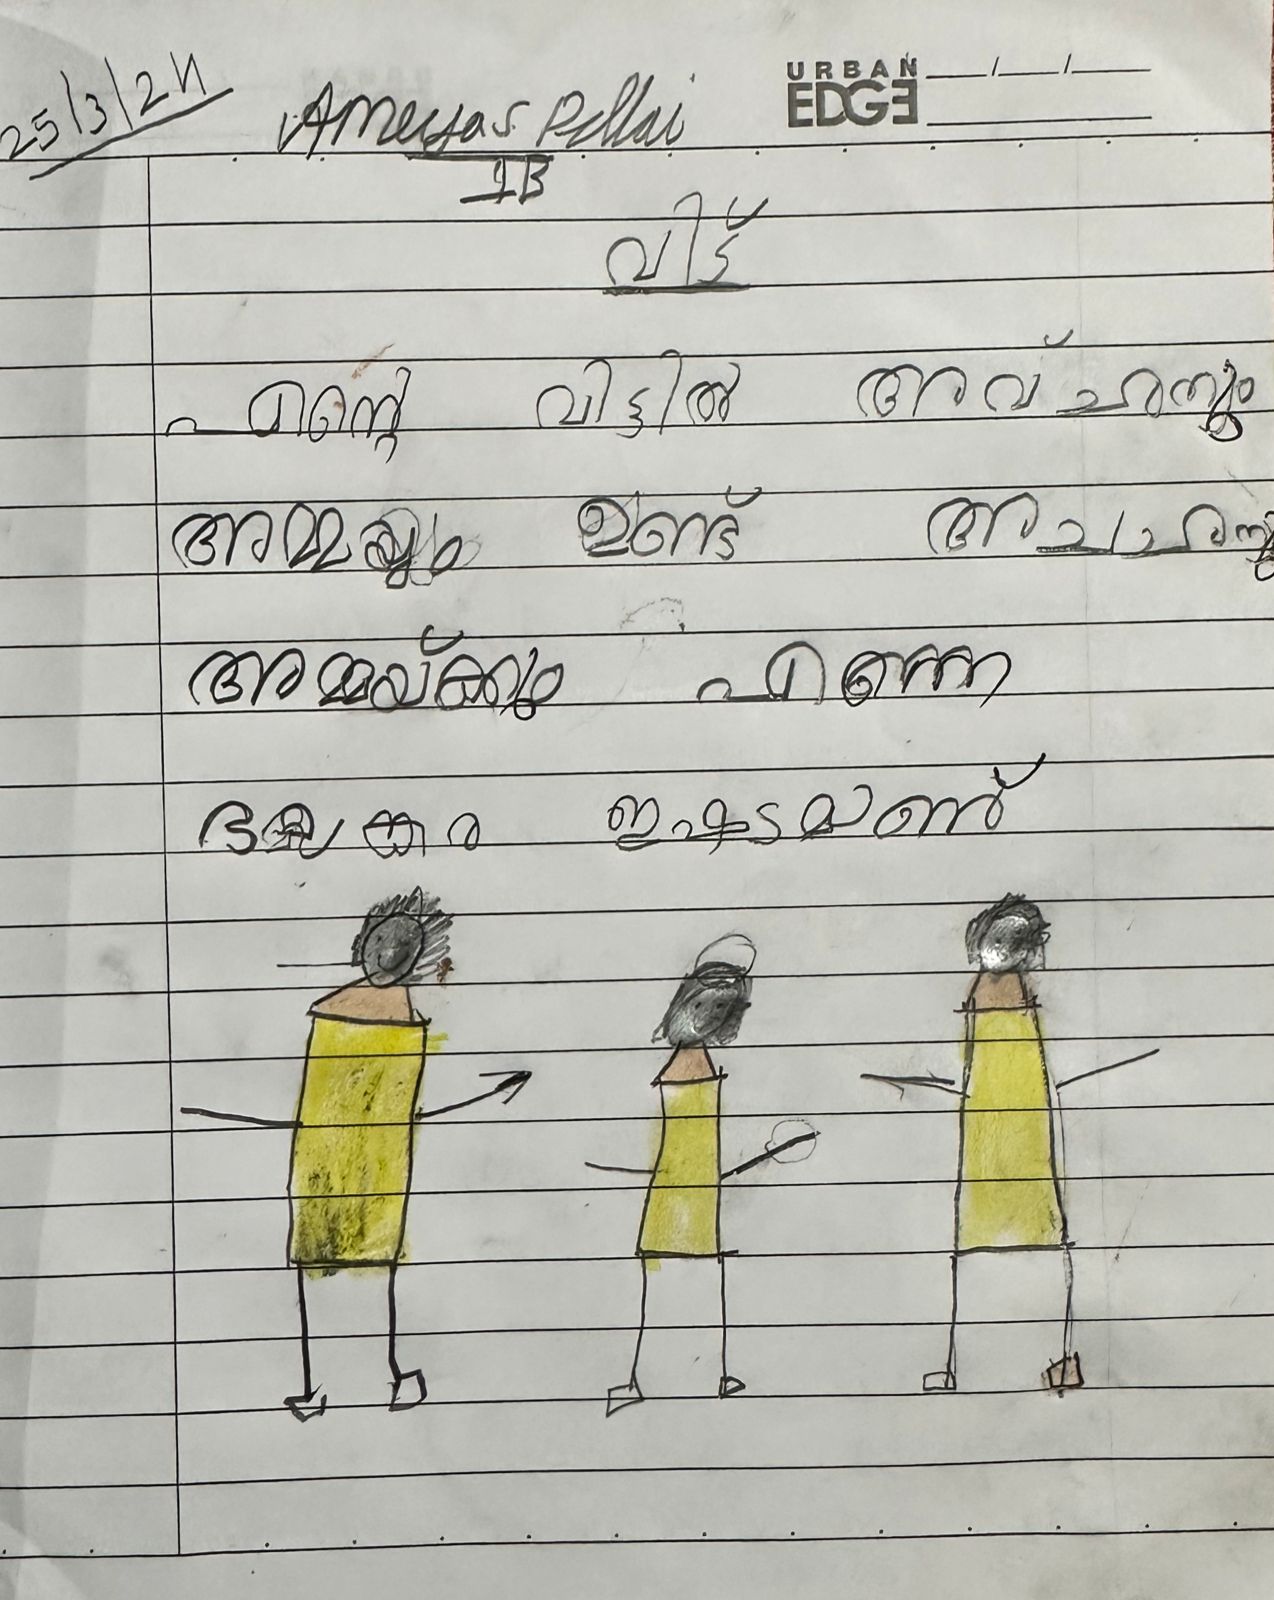 25/3/24
Ameya S Pillai
URBAN
EDGE
1B
വിട്
എന്റെ വിട്ടിൽ അവ്ചനും
അമ്മയും ഉണ്ട് അചചനു
അമ്മയ്ക്കും എന്നെ
ഭയങ്കര ഇഷടമാണ്